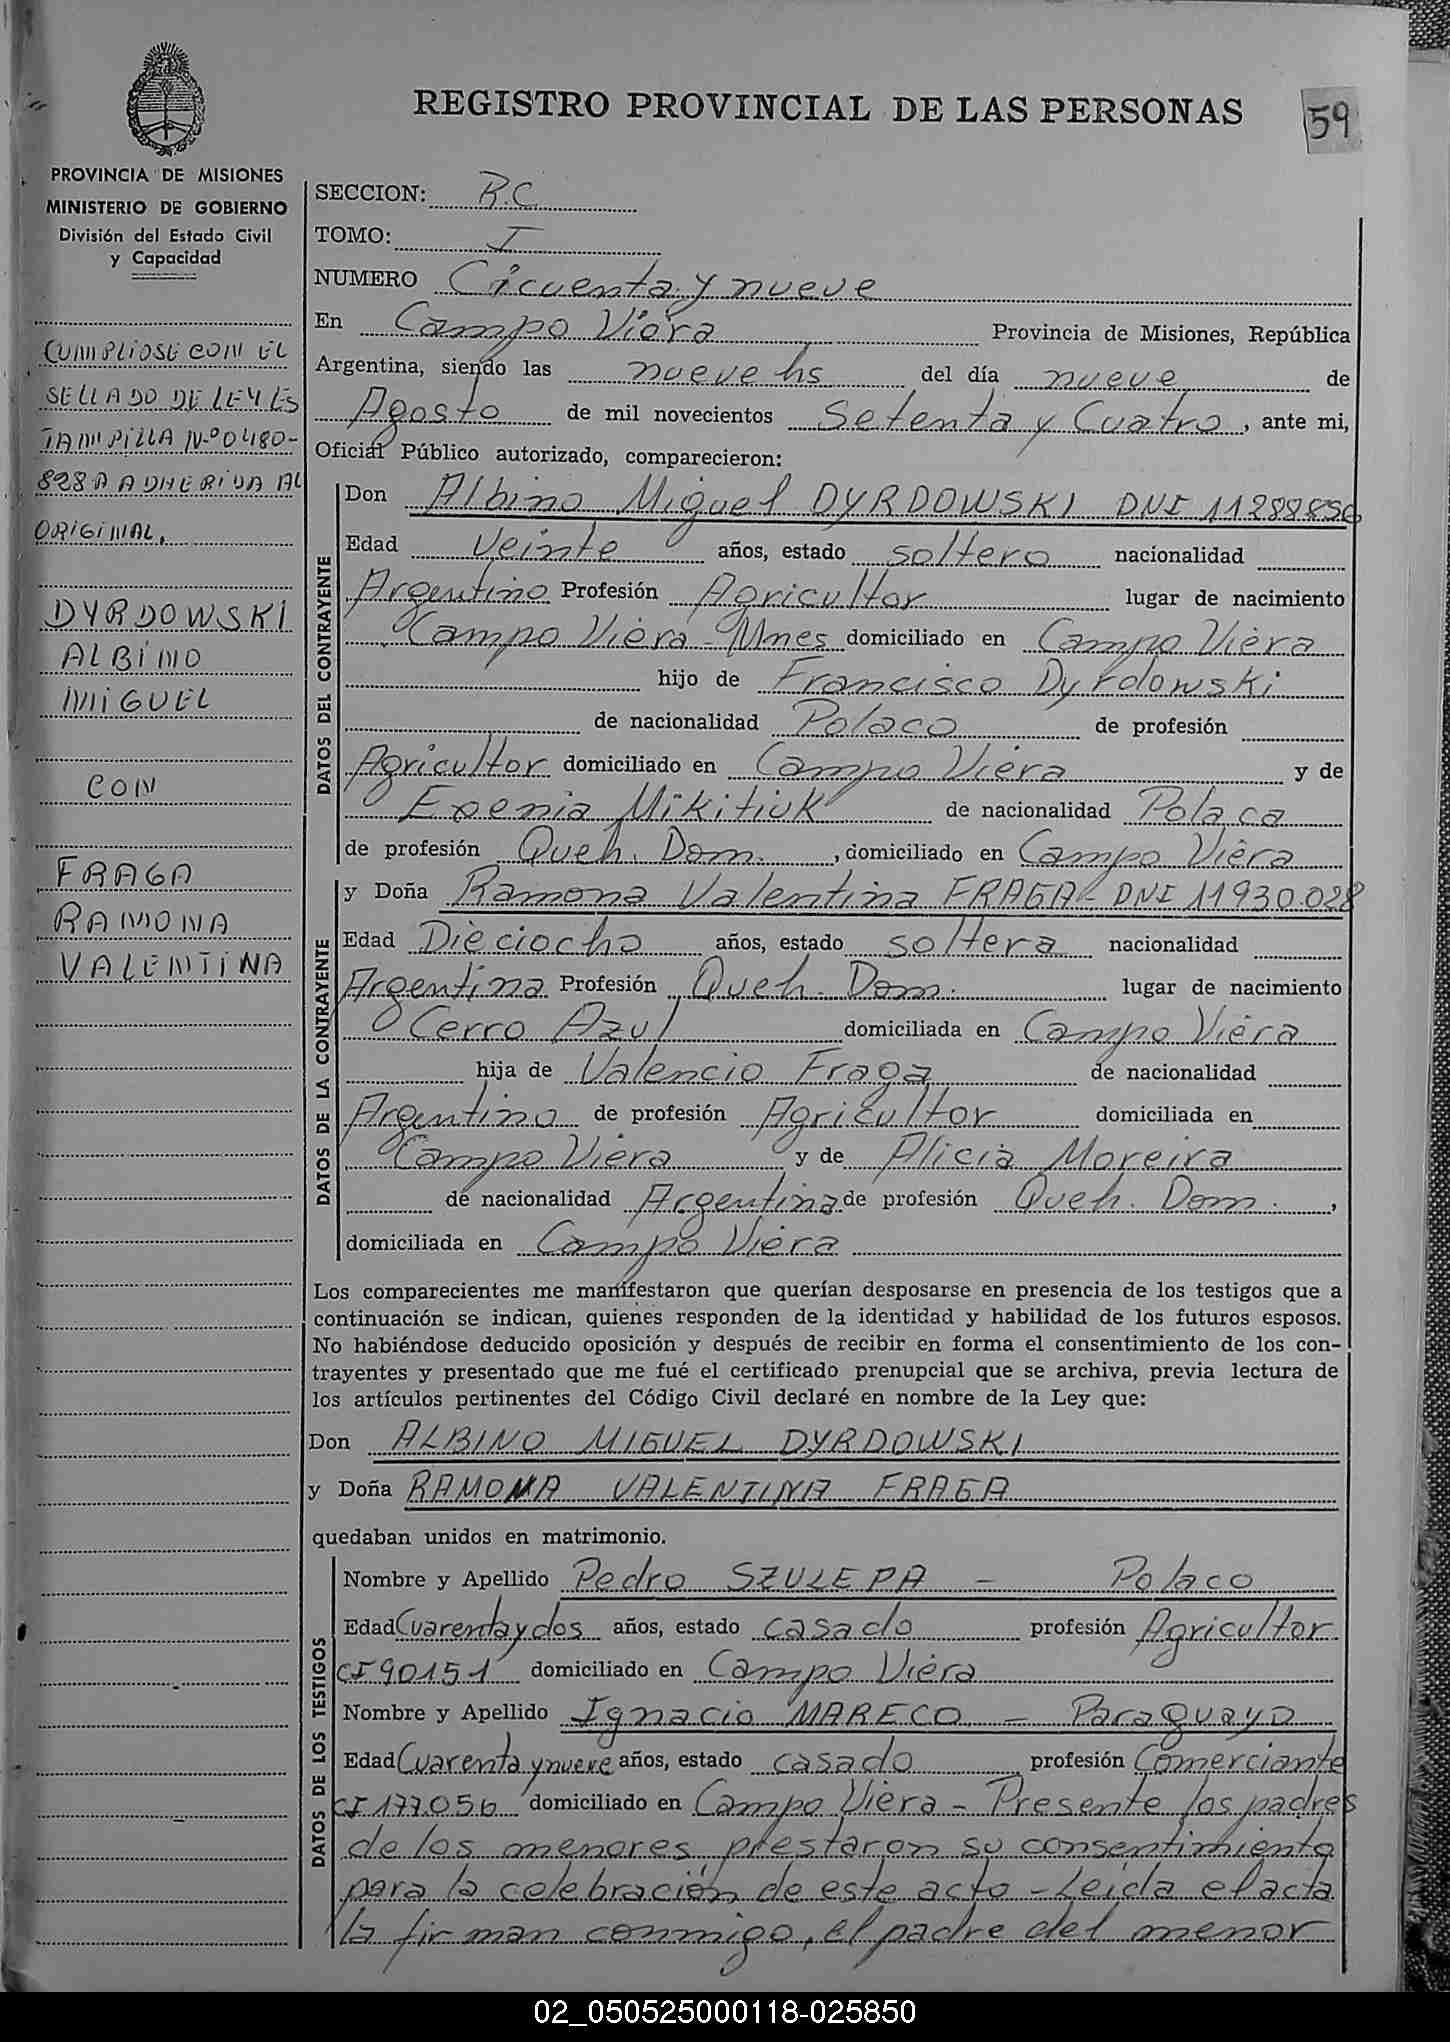 REGISTRO PROVINCIAL DE LAS PERSONAS
59
PROVINCIA DE MISIONES
MINISTERIO DE GOBIERNO
División del Estado Civil
y Capacidad
CUMPLIOSE CON EL
SELLADO DE LEY ES
TAMPILLA Nº 0480-
828 A ADHERIDA AL
ORIGINAL.
DYRDOWSKI
ALBINO
MIGUEL
CON
FRAGA
RAMONA
VALENTINA
SECCION: R.C
TOMO: I
NUMERO Cicuenta y nueve
En Campo Viera Provincia de Misiones, República
Argentina, siendo las nueve hs del día nueve de
Agosto de mil novecientos Setenta y Cuatro, ante mi,
Oficial Público autorizado, comparecieron:
DATOS DEL CONTRAYENTE
Don Albino Miguel DYRDOWSKI DNI 11288856
Edad Veinte años, estado soltero nacionalidad
Argentino Profesión Agricultor lugar de nacimiento
Campo Viera - Mnes domiciliado en Campo Viera
hijo de Francisco Dyrdowski
de nacionalidad Polaco de profesión
Agricultor domiciliado en Campo Viera y de
Mikitiuk de nacionalidad Polaca
de profesión Queh. Dom. , domiciliado en Campo Viera
DATOS DE LA CONTRAYENTE
y Doña Ramona Valentina FRAGA - DNI 11930.028
Edad Dieciocho años, estado soltera nacionalidad
Argentina Profesión Queh. Dom. lugar de nacimiento
Cerro Azul domiciliada en Campo Viera
hija de Valencio Fraga de nacionalidad
Argentino de profesión Agricultor domiciliada en
Campo Viera y de Alicia Moreira
de nacionalidad Argentina de profesión Queh. Dom. ,
domiciliada en Campo Viera
Los comparecientes me manifestaron que querían desposarse en presencia de los testigos que a
continuación se indican, quienes responden de la identidad y habilidad de los futuros esposos.
No habiéndose deducido oposición y después de recibir en forma el consentimiento de los con-
trayentes y presentado que me fué el certificado prenupcial que se archiva, previa lectura de
los artículos pertinentes del Código Civil declaré en nombre de la Ley que:
Don ALBINO MIGUEL DYRDOWSKI
y Doña RAMONA VALENTINA FRAGA
quedaban unidos en matrimonio.
DATOS DE LOS TESTIGOS
Nombre y Apellido Pedro SZULEPA - Polaco
Edad Cuarenta y dos años, estado casado profesión Agricultor
CI 90151 domiciliado en Campo Viera
Nombre y Apellido Ignacio MARECO - Paraguayo
Edad Cuarenta y nueve años, estado casado profesión Comerciante
CI 177056 domiciliado en Campo Viera - Presente los padres
de los menores prestaron su consentimiento
para la celebración de este acto - Leida el acta
la firman conmigo, el padre del menor
02_050525000118-025850